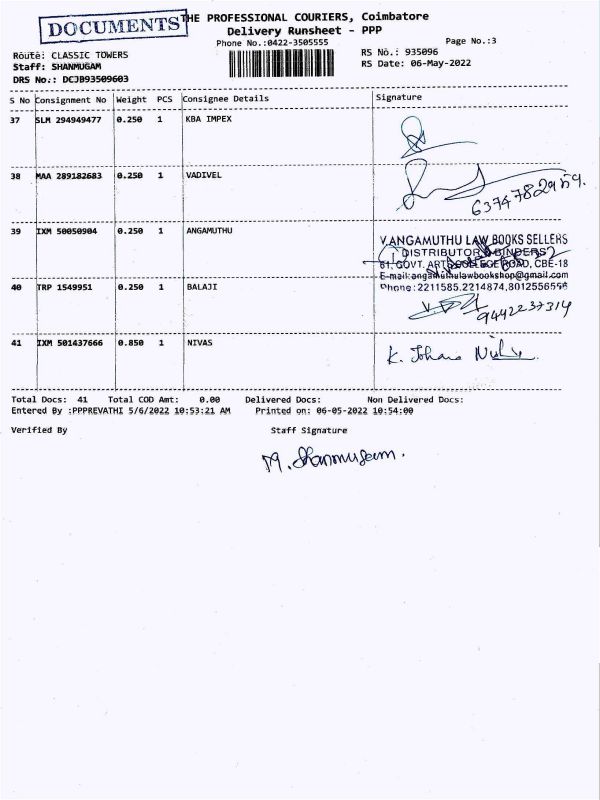 DOCUMENTS
THE PROFESSIONAL COURIERS, Coimbatore
Delivery Runsheet - PPP
Phone No.:0422-3505555
Page No.:3
Route: CLASSIC TOWERS
RS No.: 935096
Staff: SHANMUGAM
RS Date: 06-May-2022
DRS No.: DCJB93509603
S No Consignment No Weight PCS Consignee Details Signature
37 SLM 294949477 0.250 1 KBA IMPEX
38 MAA 289182683 0.250 1 VADIVEL
39 IXM 50050904 0.250 1 ANGAMUTHU
V.ANGAMUTHU LAW BOOKS SELLERS
DISTRIBUTOR & BINDERS
61, GOVT. ARTS COLLEGE ROAD, CBE-18
E-mail:angamuthulawbookshop@gmail.com
Phone: 2211585,2214874,8012556556
40 TRP 1549951 0.250 1 BALAJI
9442237314
41 IXM 501437666 0.850 1 NIVAS
K.
Total Docs: 41 Total COD Amt: 0.00 Delivered Docs: Non Delivered Docs:
Entered By :PPPREVATHI 5/6/2022 10:53:21 AM Printed on: 06-05-2022 10:54:00
Verified By Staff Signature
M. Shanmugam.